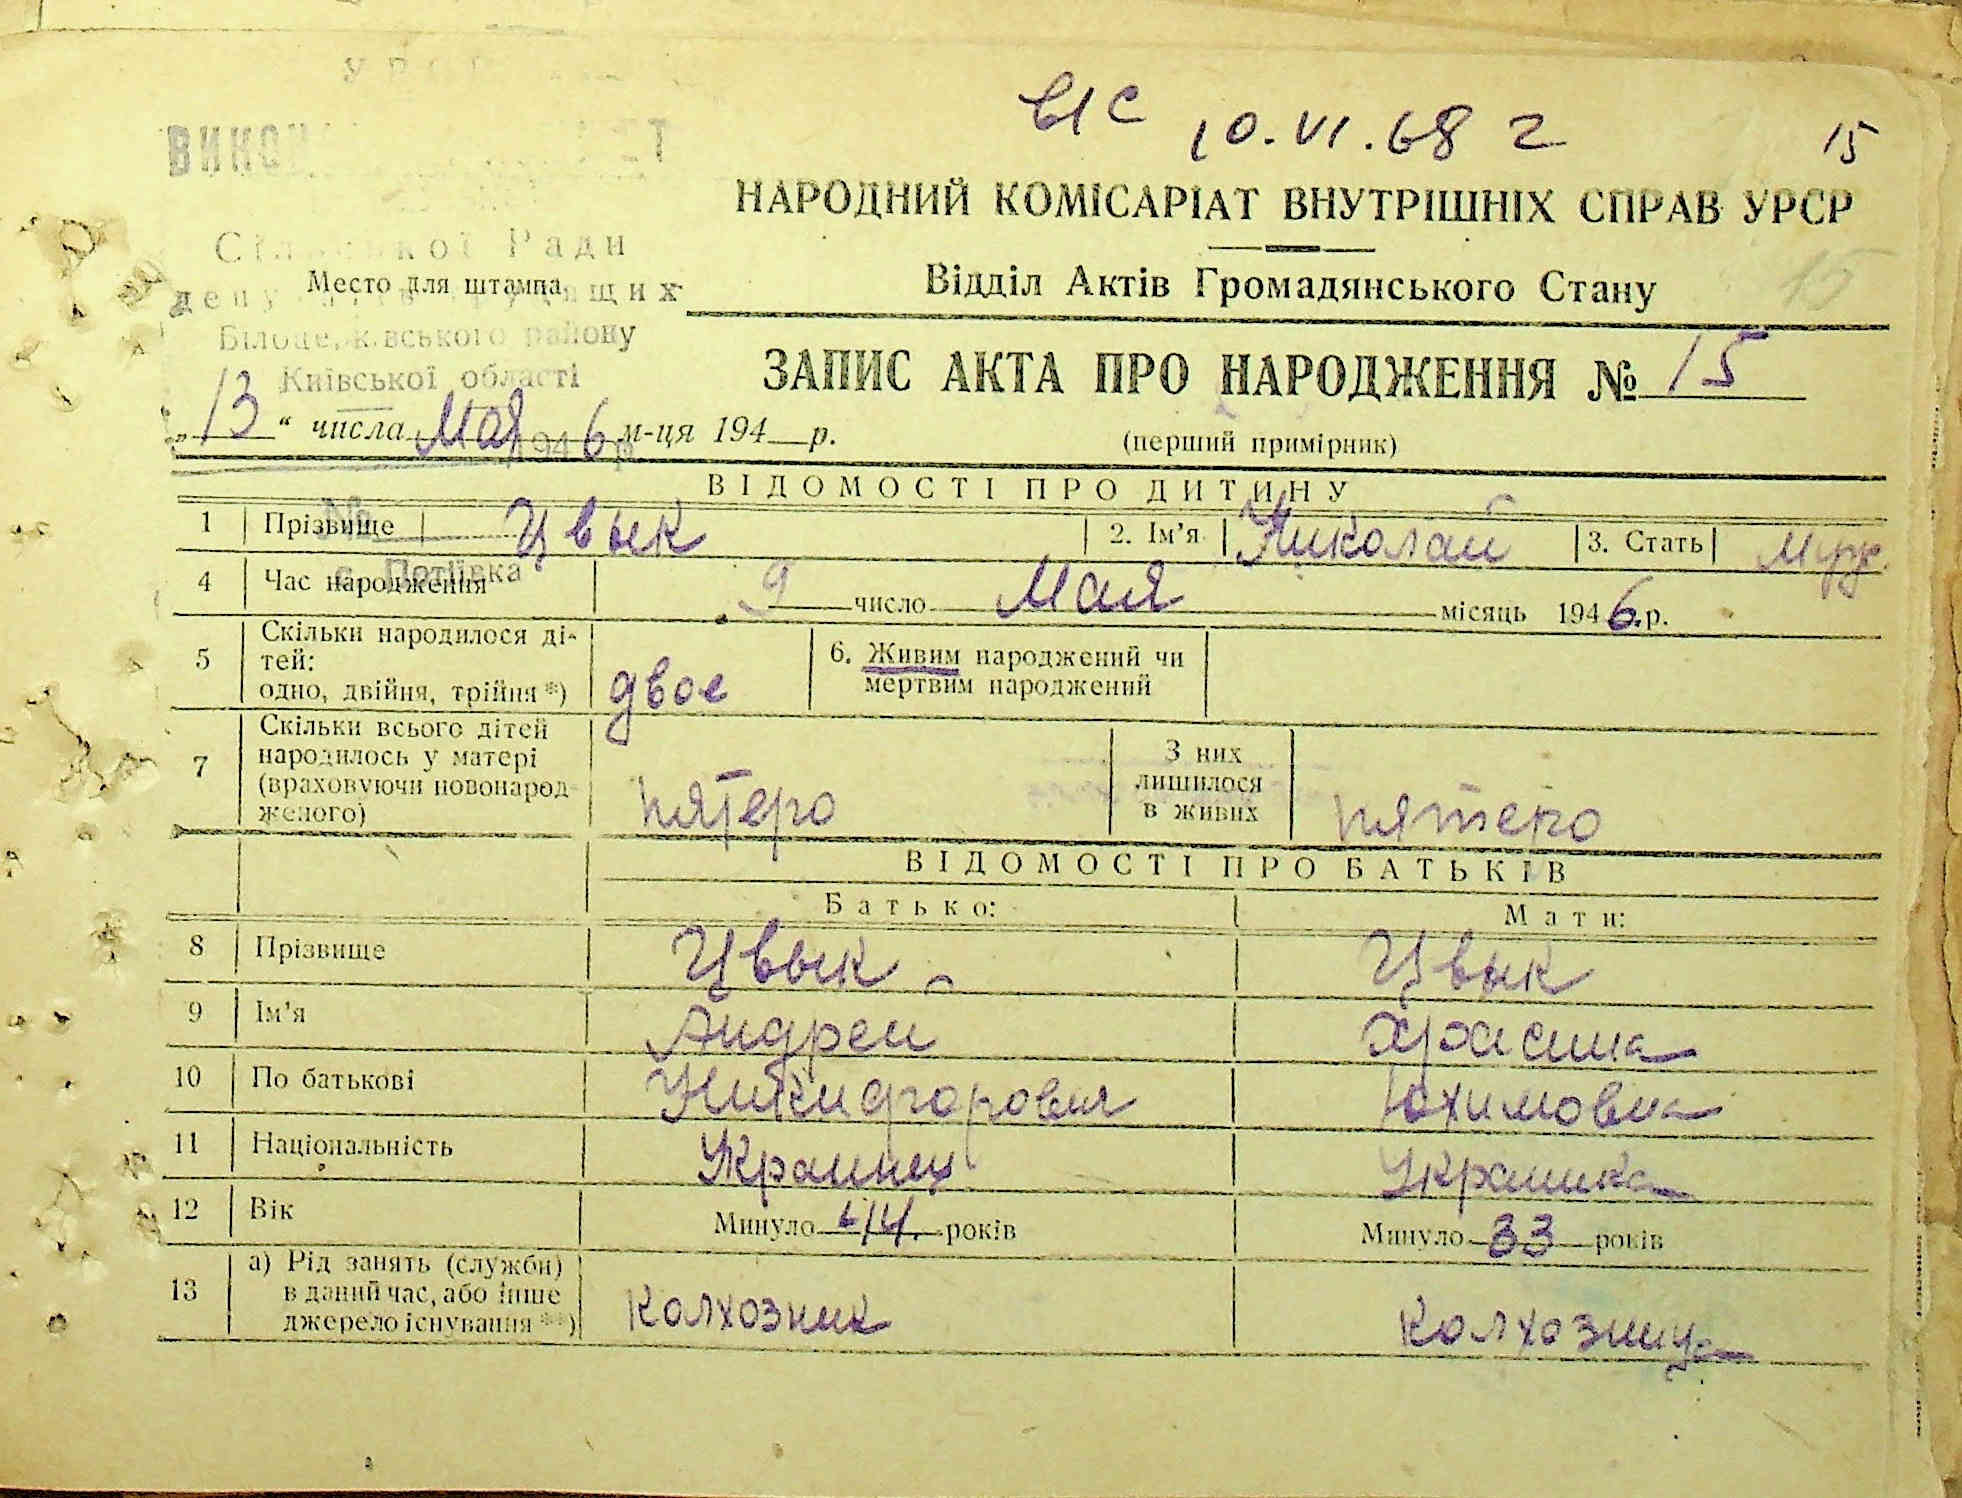 15
10.VI.68 г
НАРОДНИЙ КОМІСАРІАТ ВНУТРІШНІХ СПРАВ УРСР
Сільської Ради
Место для штампа
Відділ Актів Громадянського Стану
15
Білоцерківського району
Київської області
ЗАПИС АКТА ПРО НАРОДЖЕННЯ № 15
„13“ числа Мая 6 м-ця 194 р.
(перший примірник)
ВІДОМОСТІ ПРО ДИТИНУ
1 Прізвище Цвык 2. Ім'я Николай 3. Стать Муж.
с. Потіївка
4 Час народження 9 число Мая місяць 1946.р.
5 Скільки народилося ді-
тей:
одно, двійня, трійня *) двое
6. Живим народжений чи
мертвим народжений
7 Скільки всього дітей
народилось у матері
(враховуючи новонарод-
женого) пятеро
З них
лишилося
в живих пятеро
ВІДОМОСТІ ПРО БАТЬКІВ
Батько: Мати:
8 Прізвище Цвык Цвык
9 Ім'я Андрей
10 По батькові Никифорович Юхимовна
11 Національність Украинец Украинка
12 Вік Минуло 44 років Минуло 33 років
13 а) Рід занять (служби)
в даний час, або інше
джерело існування **) Колхозник Колхозница